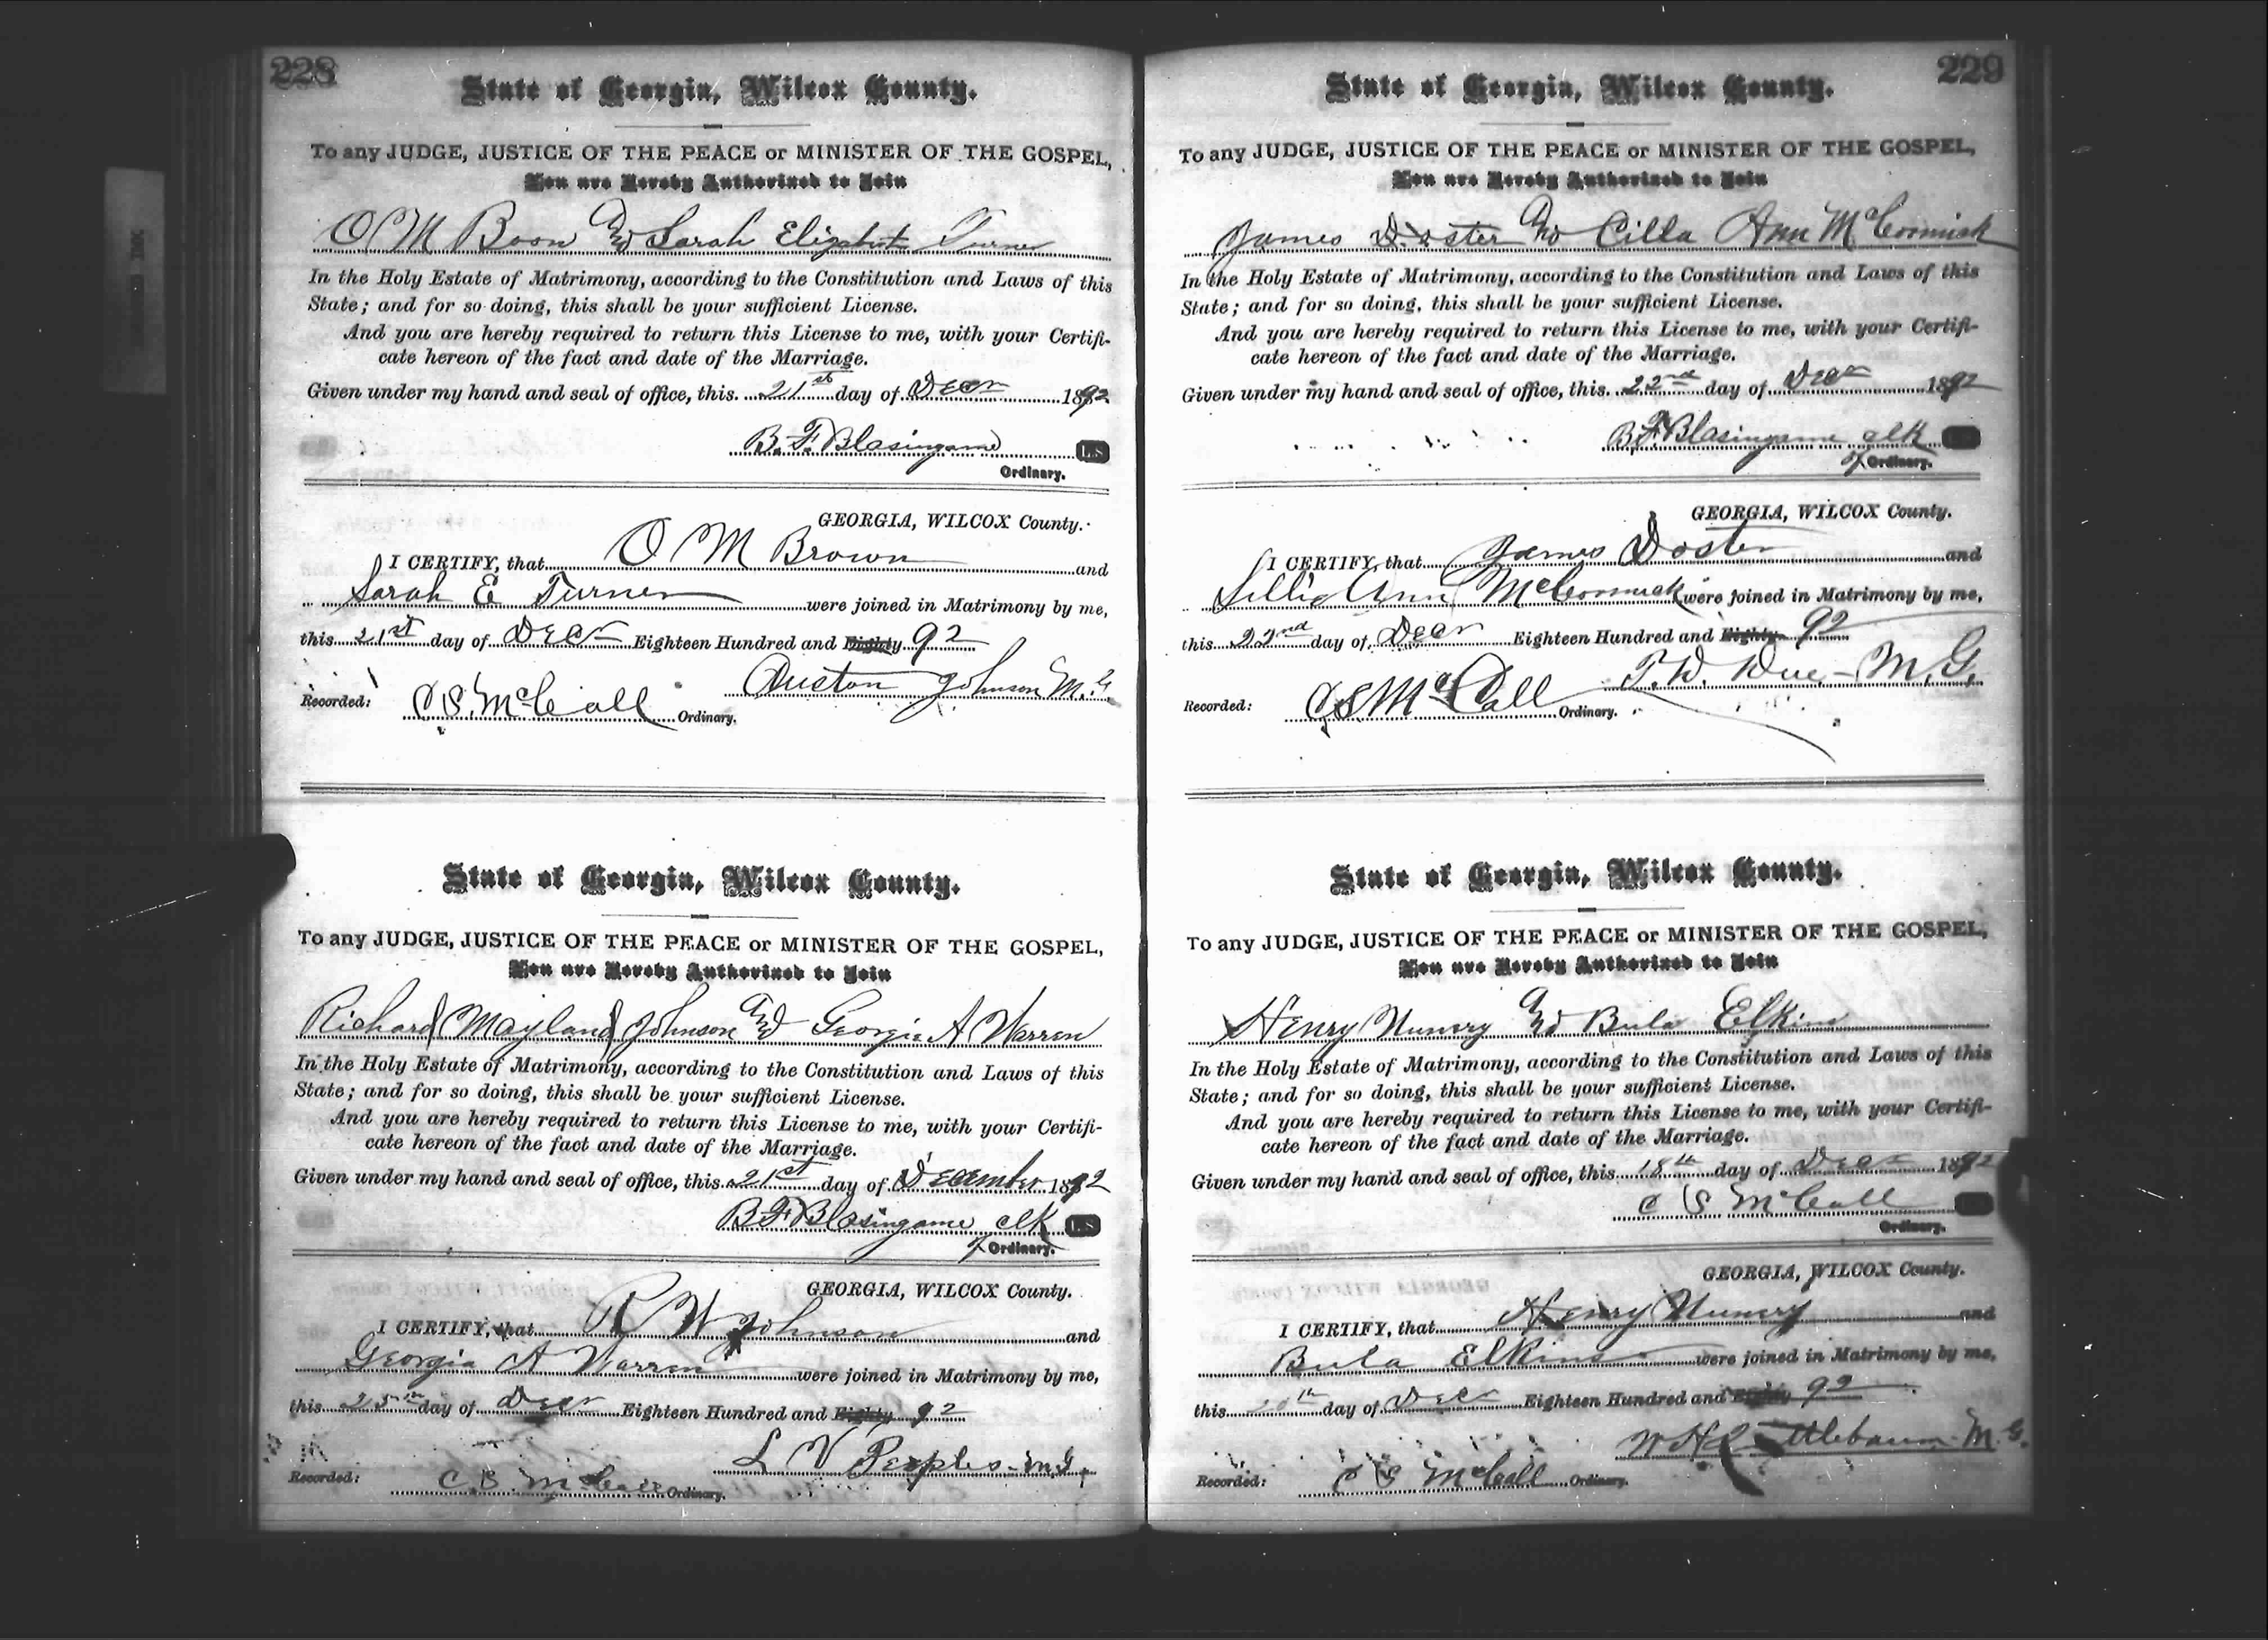 228
State of Georgia, Wilcox County.
To any JUDGE, JUSTICE OF THE PEACE or MINISTER OF THE GOSPEL,
You are Hereby Authorized to Join
O M Boon And Sarah Elizabeth Turner
In the Holy Estate of Matrimony, according to the Constitution and Laws of this
State; and for so doing, this shall be your sufficient License.
And you are hereby required to return this License to me, with your Certifi-
cate hereon of the fact and date of the Marriage.
Given under my hand and seal of office, this 21st day of Decr 1892
B. F. Blasingame L.S
Ordinary.
GEORGIA, WILCOX County.
I CERTIFY, that O M Brown and
Sarah E Turner were joined in Matrimony by me,
this 21st day of Decr Eighteen Hundred and Eighty 92
Auston Johnson M.G.
Recorded: C S. McCall Ordinary.
State of Georgia, Wilcox County.
To any JUDGE, JUSTICE OF THE PEACE or MINISTER OF THE GOSPEL,
You are Hereby Authorized to Join
Richard Mayland Johnson And Georgia A Warren
In the Holy Estate of Matrimony, according to the Constitution and Laws of this
State; and for so doing, this shall be your sufficient License.
And you are hereby required to return this License to me, with your Certifi-
cate hereon of the fact and date of the Marriage.
Given under my hand and seal of office, this 21st day of December 1892
B F Blasingame clk L.S
Ordinary.
GEORGIA, WILCOX County.
I CERTIFY, that R W Johnson and
Georgia A Warren were joined in Matrimony by me,
this 25th day of Decr Eighteen Hundred and Eighty 92
L V Peeples - M.G.
Recorded: C. S. McCall Ordinary.
229
State of Georgia, Wilcox County.
To any JUDGE, JUSTICE OF THE PEACE or MINISTER OF THE GOSPEL,
You are Hereby Authorized to Join
James Doster And Cilla Ann McCormick
In the Holy Estate of Matrimony, according to the Constitution and Laws of this
State; and for so doing, this shall be your sufficient License.
And you are hereby required to return this License to me, with your Certifi-
cate hereon of the fact and date of the Marriage.
Given under my hand and seal of office, this 22nd day of Decr 1892
B F Blasingame clk
Ordinary.
GEORGIA, WILCOX County.
I CERTIFY, that James Doster and
Sillie Ann McCormick were joined in Matrimony by me,
this 22nd day of Decr Eighteen Hundred and Eighty 92
T. W. Due - M.G.
Recorded: C S McCall Ordinary.
State of Georgia, Wilcox County.
To any JUDGE, JUSTICE OF THE PEACE or MINISTER OF THE GOSPEL,
You are Hereby Authorized to Join
Henry Nunery And Bula Elkins
In the Holy Estate of Matrimony, according to the Constitution and Laws of this
State; and for so doing, this shall be your sufficient License.
And you are hereby required to return this License to me, with your Certifi-
cate hereon of the fact and date of the Marriage.
Given under my hand and seal of office, this 18th day of Decr 1892
C S McCall
Ordinary.
GEORGIA, WILCOX County.
I CERTIFY, that Henry Nunery and
Bula Elkins were joined in Matrimony by me,
this 20th day of Decr Eighteen Hundred and Eighty 92
M.G.
Recorded: C S McCall Ordinary.